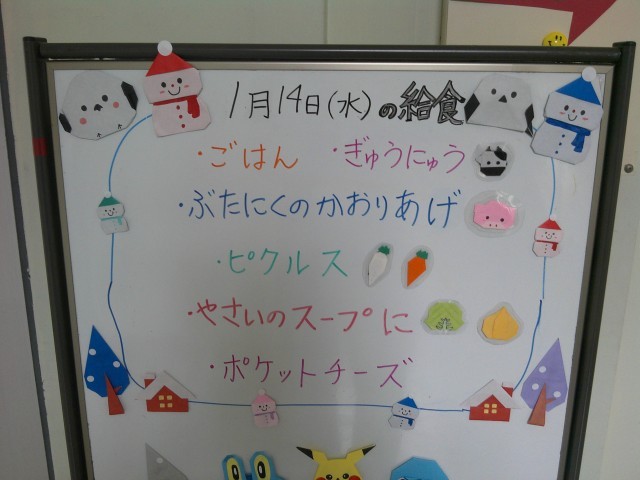 1月14日(水)の給食
・ごはん ・ぎゅうにゅう
・ぶたにくのかおりあげ
・ピクルス
・やさいのスープに
・ポケットチーズ